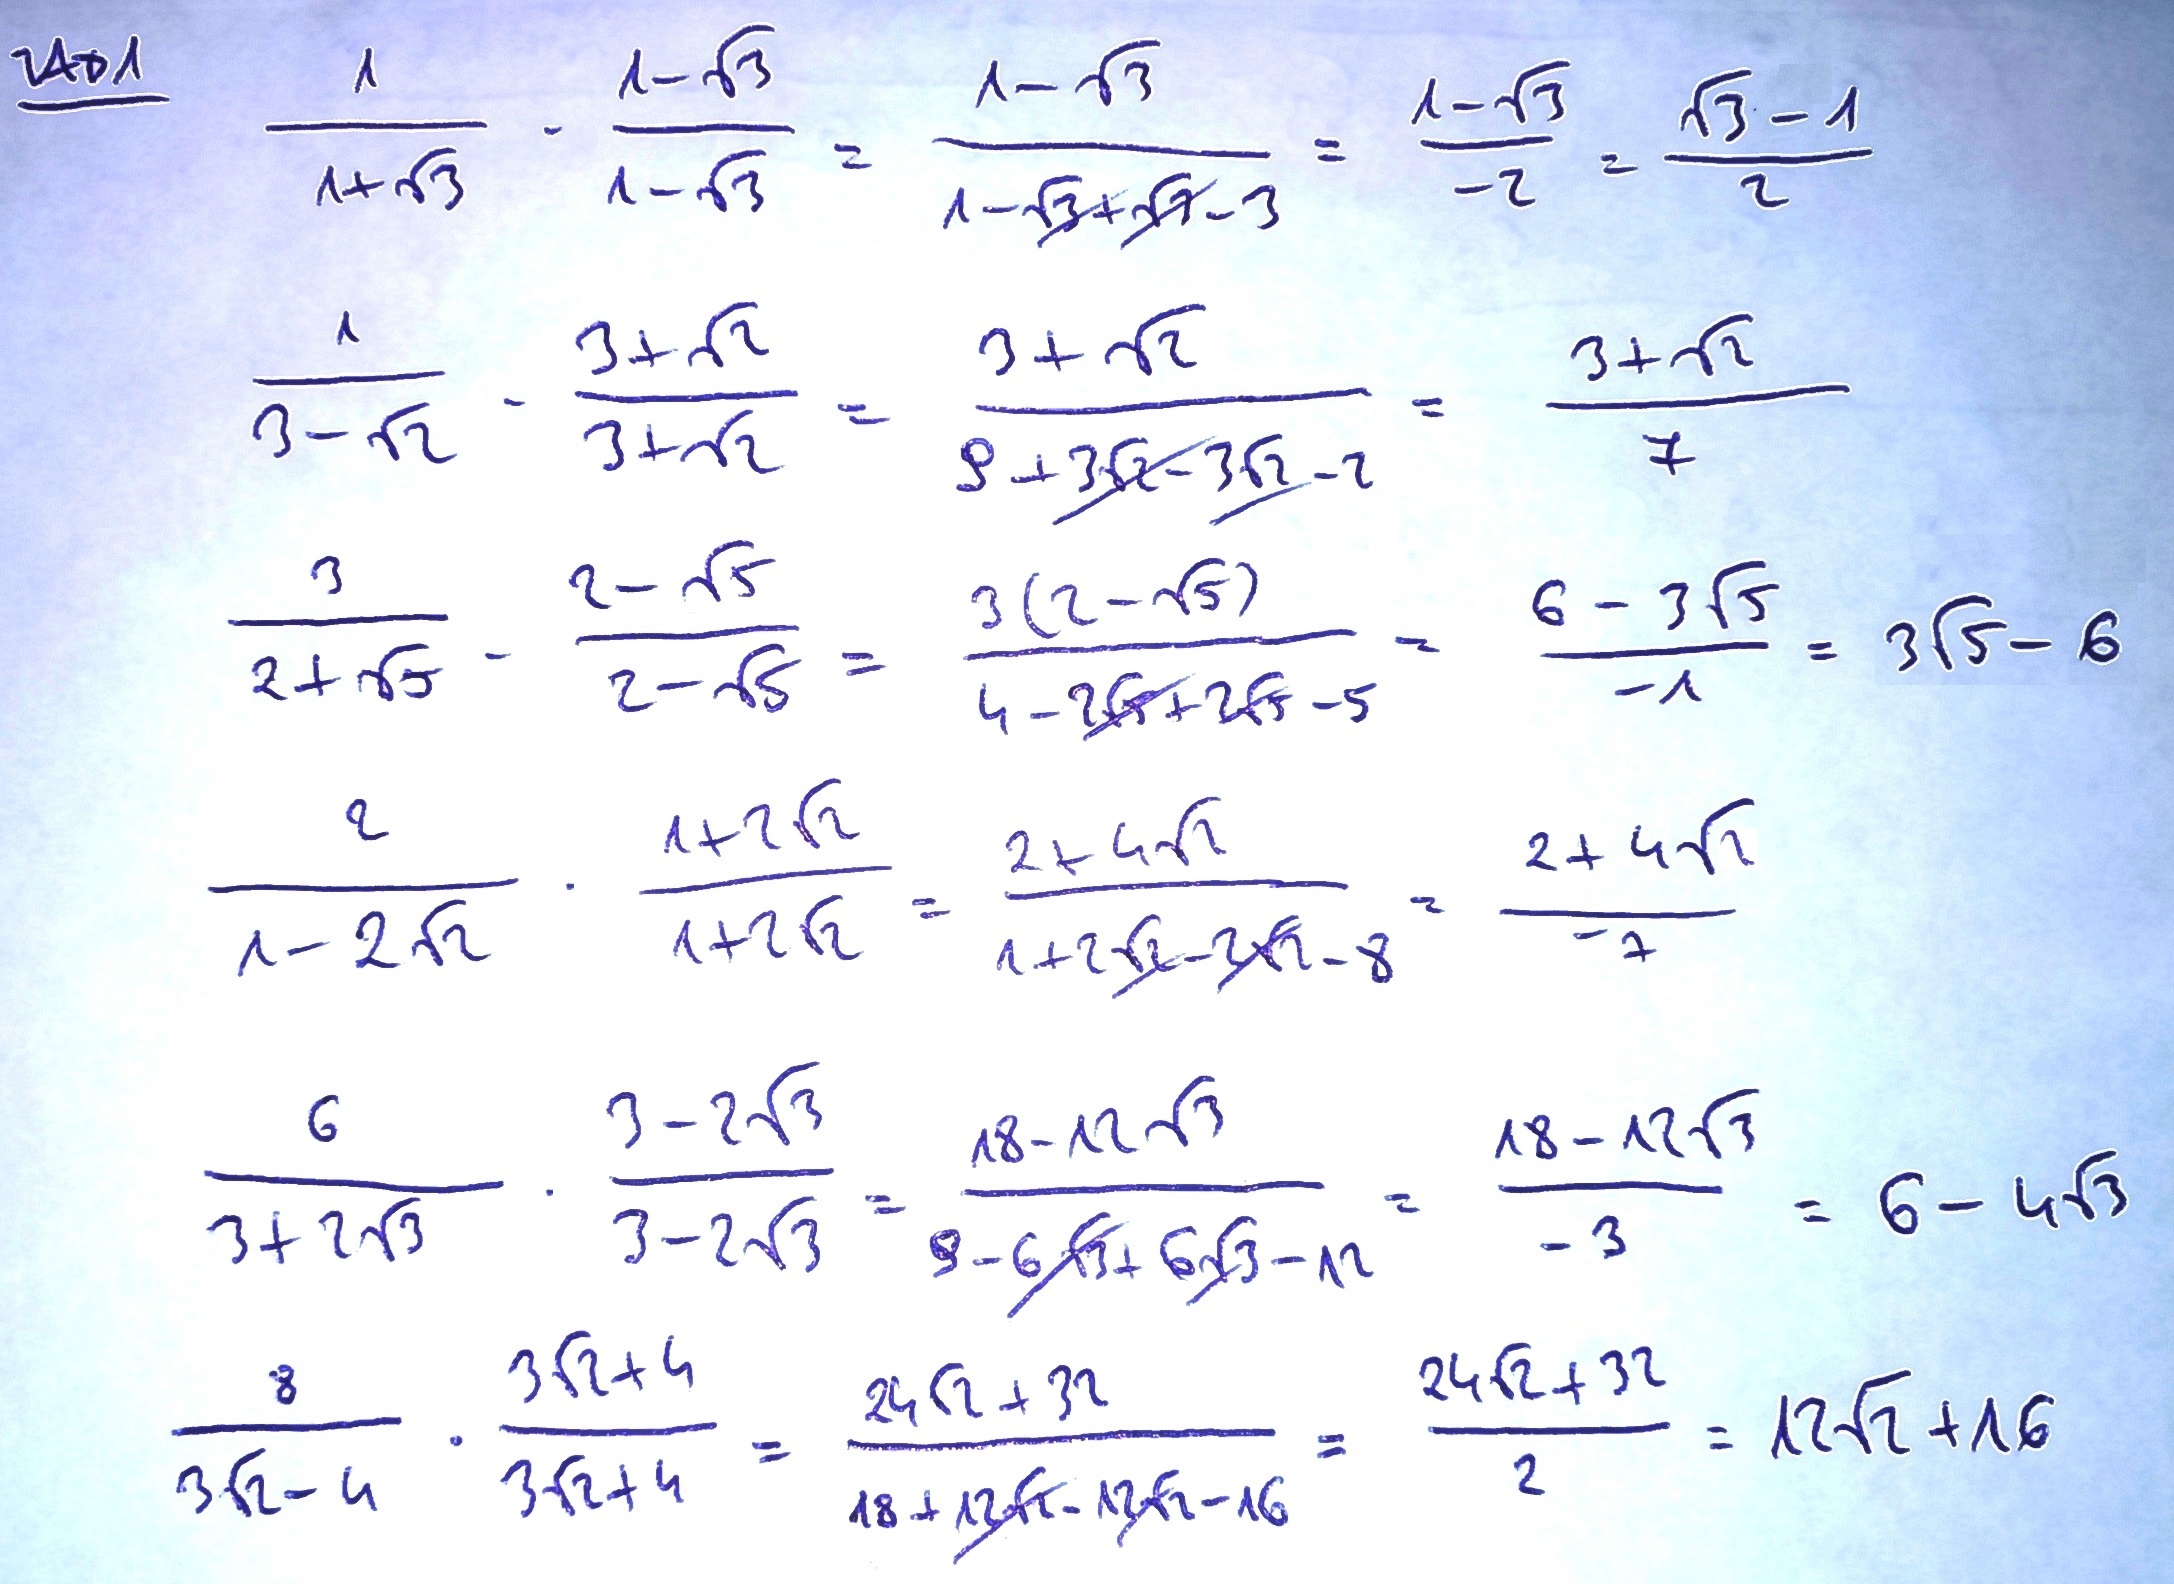 ZAD1 1/(1+√3) · (1-√3)/(1-√3) = (1-√3)/(1-√3+√3-3) = (1-√3)/(-2) = (√3-1)/2
1/(3-√2) · (3+√2)/(3+√2) = (3+√2)/(9+3√2-3√2-2) = (3+√2)/7
3/(2+√5) · (2-√5)/(2-√5) = 3(2-√5)/(4-2√5+2√5-5) = (6-3√5)/(-1) = 3√5-6
2/(1-2√2) · (1+2√2)/(1+2√2) = (2+4√2)/(1+2√2-2√2-8) = (2+4√2)/(-7)
6/(3+2√3) · (3-2√3)/(3-2√3) = (18-12√3)/(9-6√3+6√3-12) = (18-12√3)/(-3) = 6-4√3
8/(3√2-4) · (3√2+4)/(3√2+4) = (24√2+32)/(18+12√2-12√2-16) = (24√2+32)/2 = 12√2+16